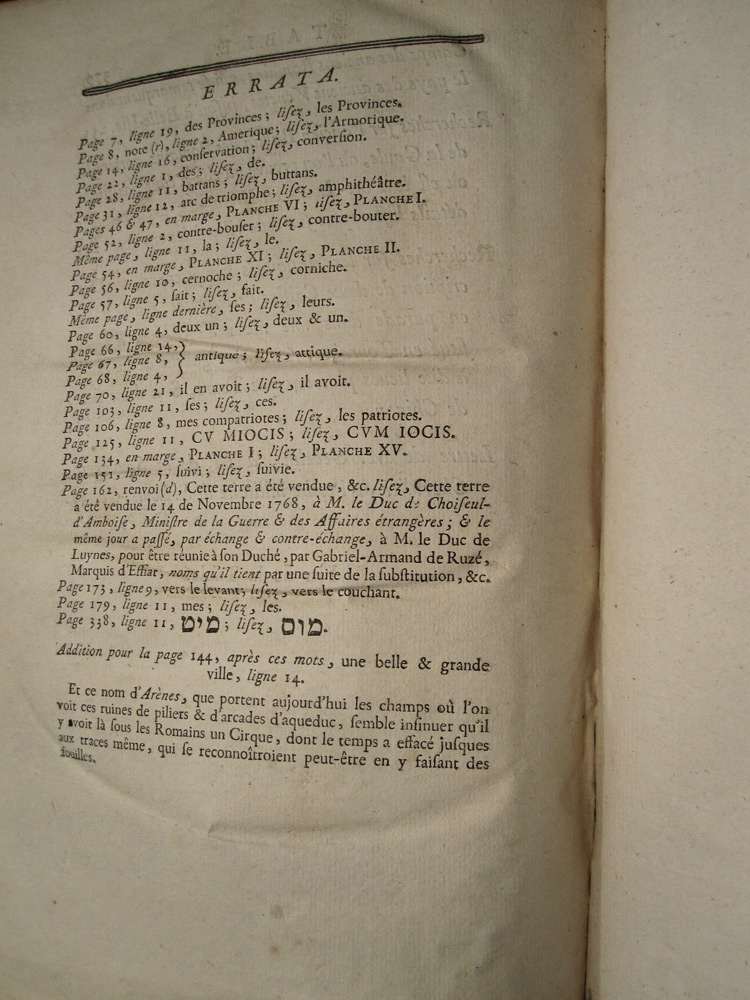 ERRATA.
Page 7, ligne 19, des Provinces; liſez, les Provinces.
Page 8, note (r), ligne 2, Amerique; liſez, l'Armorique.
Page 14, ligne 16, conſervation; liſez, converſion.
Page 22, ligne 1, des; liſez, de.
Page 28, ligne 11, battans; liſez, buttans.
Page 31, ligne 12, arc de triomphe; liſez, amphithéâtre.
Pages 46 & 47, en marge, PLANCHE VI; liſez, PLANCHE I.
Page 52, ligne 2, contre-bouſer; liſez, contre-bouter.
Même page, ligne 11, la; liſez, le.
Page 54, en marge, PLANCHE XI; liſez, PLANCHE II.
Page 56, ligne 10, cernoche; liſez, corniche.
Page 57, ligne 5, ſait; liſez, fait.
Même page, ligne dernière, ſes; liſez, leurs.
Page 60, ligne 4, deux un; liſez, deux & un.
Page 66, ligne 14,
Page 67, ligne 8, } antique; liſez, attique.
Page 68, ligne 4,
Page 70, ligne 21, il en avoit; liſez, il avoit.
Page 103, ligne 11, ſes; liſez, ces.
Page 106, ligne 8, mes compatriotes; liſez, les patriotes.
Page 125, ligne 11, CV MIOCIS; liſez, CVM IOCIS.
Page 134, en marge, PLANCHE I; liſez, PLANCHE XV.
Page 151, ligne 5, ſuivi; liſez, ſuivie.
Page 162, renvoi (d), Cette terre a été vendue, &c. liſez, Cette terre
a été vendue le 14 de Novembre 1768, à M. le Duc de Choiſeul-
d'Amboiſe, Miniſtre de la Guerre & des Affaires étrangères; & le
même jour a paſſé, par échange & contre-échange, à M. le Duc de
Luynes, pour être réunie à ſon Duché, par Gabriel-Armand de Ruzé,
Marquis d'Effiat, noms qu'il tient par une ſuite de la ſubſtitution, &c.
Page 173, ligne 9, vers le levant; liſez, vers le couchant.
Page 179, ligne 11, mes; liſez, les.
Page 338, ligne 11, מיט; liſez, מוס.
Addition pour la page 144, après ces mots, une belle & grande
ville, ligne 14.
Et ce nom d'Arènes, que portent aujourd'hui les champs où l'on
voit ces ruines de piliers & d'arcades d'aqueduc, ſemble inſinuer qu'il
y avoit là ſous les Romains un Cirque, dont le temps a effacé juſques
aux traces même, qui ſe reconnoîtroient peut-être en y faiſant des
fouilles.